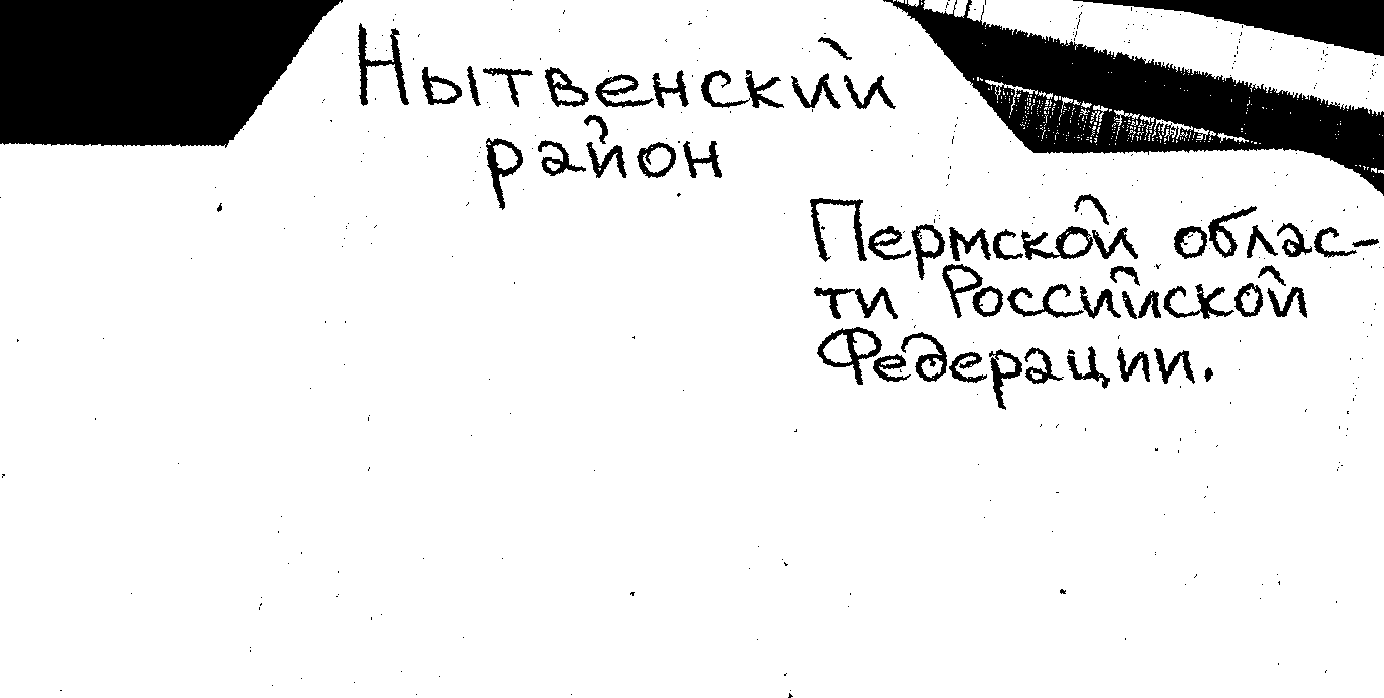 Нытвенский
район
Пермской облас-
ти Российской
Федерации.